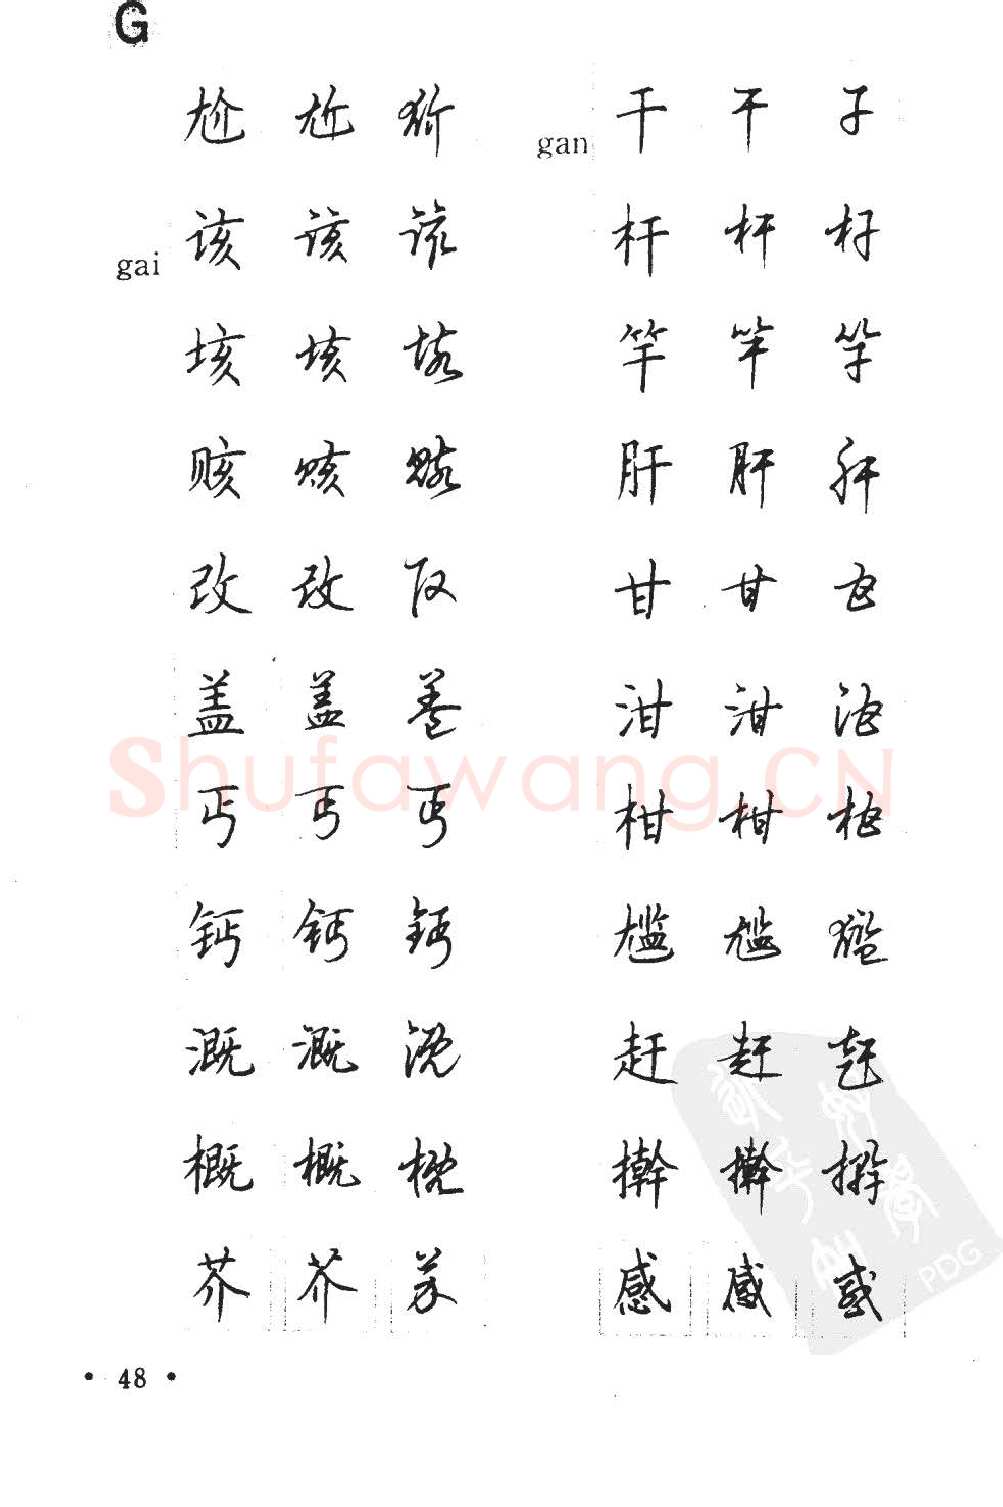 G
尬 尬 尬
gai 该 该 该
垓 垓 垓
赅 赅 赅
改 改 改
盖 盖 盖
丐 丐 丐
钙 钙 钙
溉 溉 溉
概 概 概
芥 芥 芥
gan 干 干 干
杆 杆 杆
竿 竿 竿
肝 肝 肝
甘 甘 甘
泔 泔 泔
柑 柑 柑
尴 尴 尴
赶 赶 赶
擀 擀 擀
感 感 感
Shufawang.CN
PDG
• 48 •